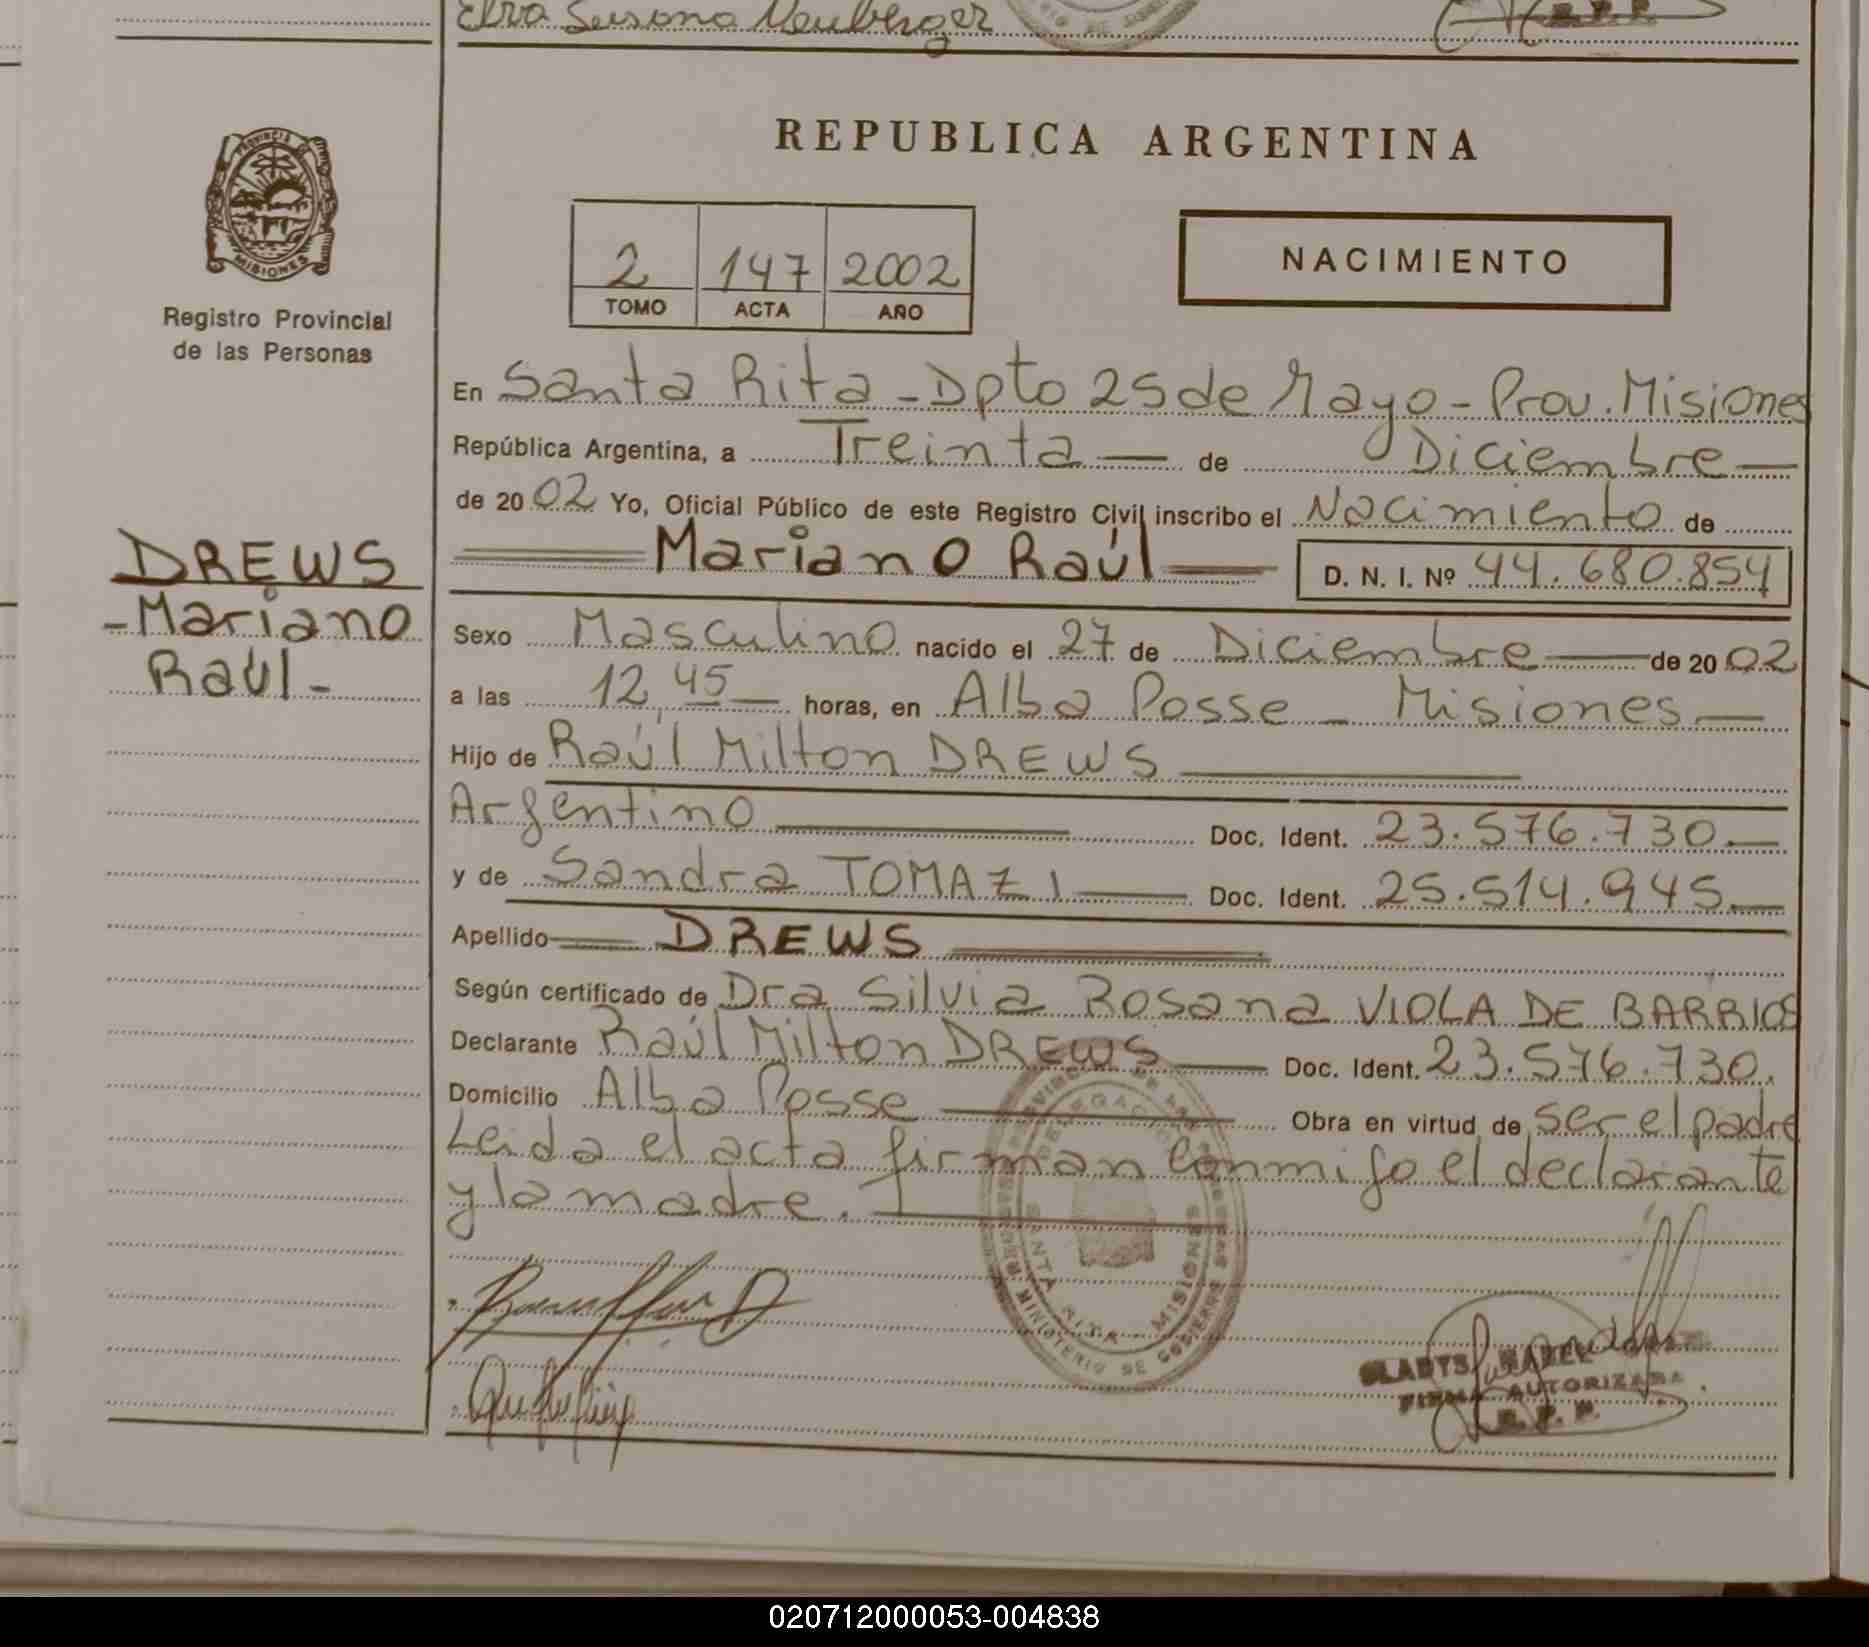 Elva Susana Neuberger
REPUBLICA ARGENTINA
PROVINCIA DE
MISIONES
Registro Provincial
de las Personas
2 147 2002
TOMO ACTA AÑO
NACIMIENTO
En Santa Rita - Dpto 25 de Mayo - Prov. Misiones
República Argentina, a Treinta — de Diciembre —
de 2002 Yo, Oficial Público de este Registro Civil inscribo el Nacimiento de
Mariano Raúl
D. N. I. Nº 44.680.854
DREWS
-Mariano
Raúl-
Sexo Masculino nacido el 27 de Diciembre — de 2002
a las 12,45 — horas, en Alba Posse - Misiones —
Hijo de Raúl Milton DREWS
Argentino — Doc. Ident. 23.576.730.—
y de Sandra TOMAZI — Doc. Ident. 25.514.945.—
Apellido — DREWS —
Según certificado de Dra Silvia Rosana VIOLA DE BARRIOS
Declarante Raúl Milton DREWS — Doc. Ident. 23.576.730.
Domicilio Alba Posse — Obra en virtud de ser el padre
Leida el acta firman conmigo el declarante
y la madre.
SANTA RITA - MISIONES
MINISTERIO DE GOBIERNO
GLADYS MABEL
FIRMA AUTORIZADA
R. P. P.
020712000053-004838